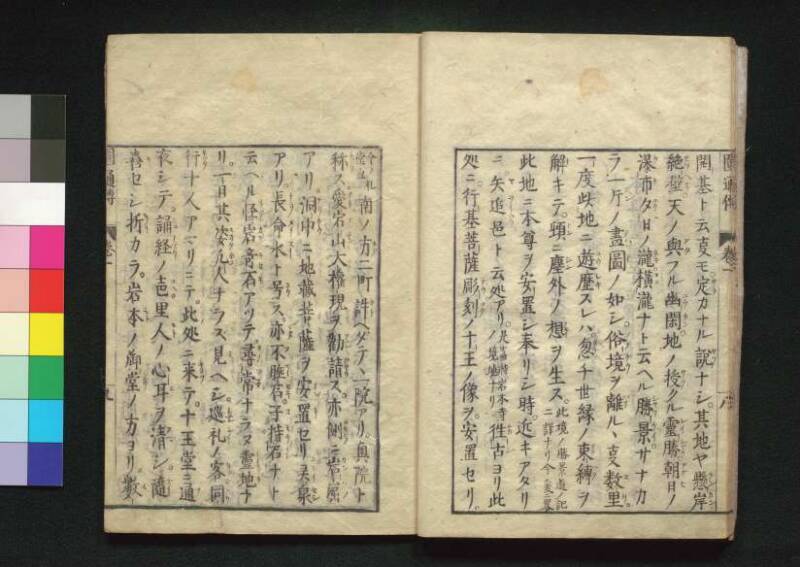 開基ト云叓モ定カナル說ナシ。其地ヤ懸岸
絶壁天ノ與フル幽閑地ノ授クル靈勝朝日ノ
瀑布夕日ノ瀧橫瀧ナト云ヘル勝景サナカ
ラ一斤ノ畫圖ノ如シ。俗境ヲ離ル丶叓数里
一度此地ニ遊歷スレハ忽チ世縁ノ束縛ヲ
解キテ。頭ニ塵外ノ想ヲ生ス。此境ノ勝景
此地ニ本尊ヲ安置シ奉リシ時。近キアタリ
ニ矢造邑ト云処アリ。岩本寺ノ境地ナリ 徃古ヨリ此
処ニ。行基菩薩彫刻ノ十王ノ像ヲ安置セリ。
南ノ方二町許ヘダテ丶一院アリ。奥院ト
称ス愛宕山大権現ヲ勧請ス。亦側ニ岩窟
アリ洞中ニ地藏菩薩ヲ安置セリ。灵泉
アリ長命水ト号ス。亦不動石子持石ナト
云ヘル怪岩竒石アツテ尋常ナラヌ霊地ナ
リ。一日其姿凡人ナラス見ヘシ巡礼ノ客同
行十人アマリニテ。此処ニ来テ。十王堂ニ通
夜シテ。誦経ノ声里人ノ心耳ヲ清シ。随
喜セシ折カラ。岩本ノ御堂ノ方ヨリ數